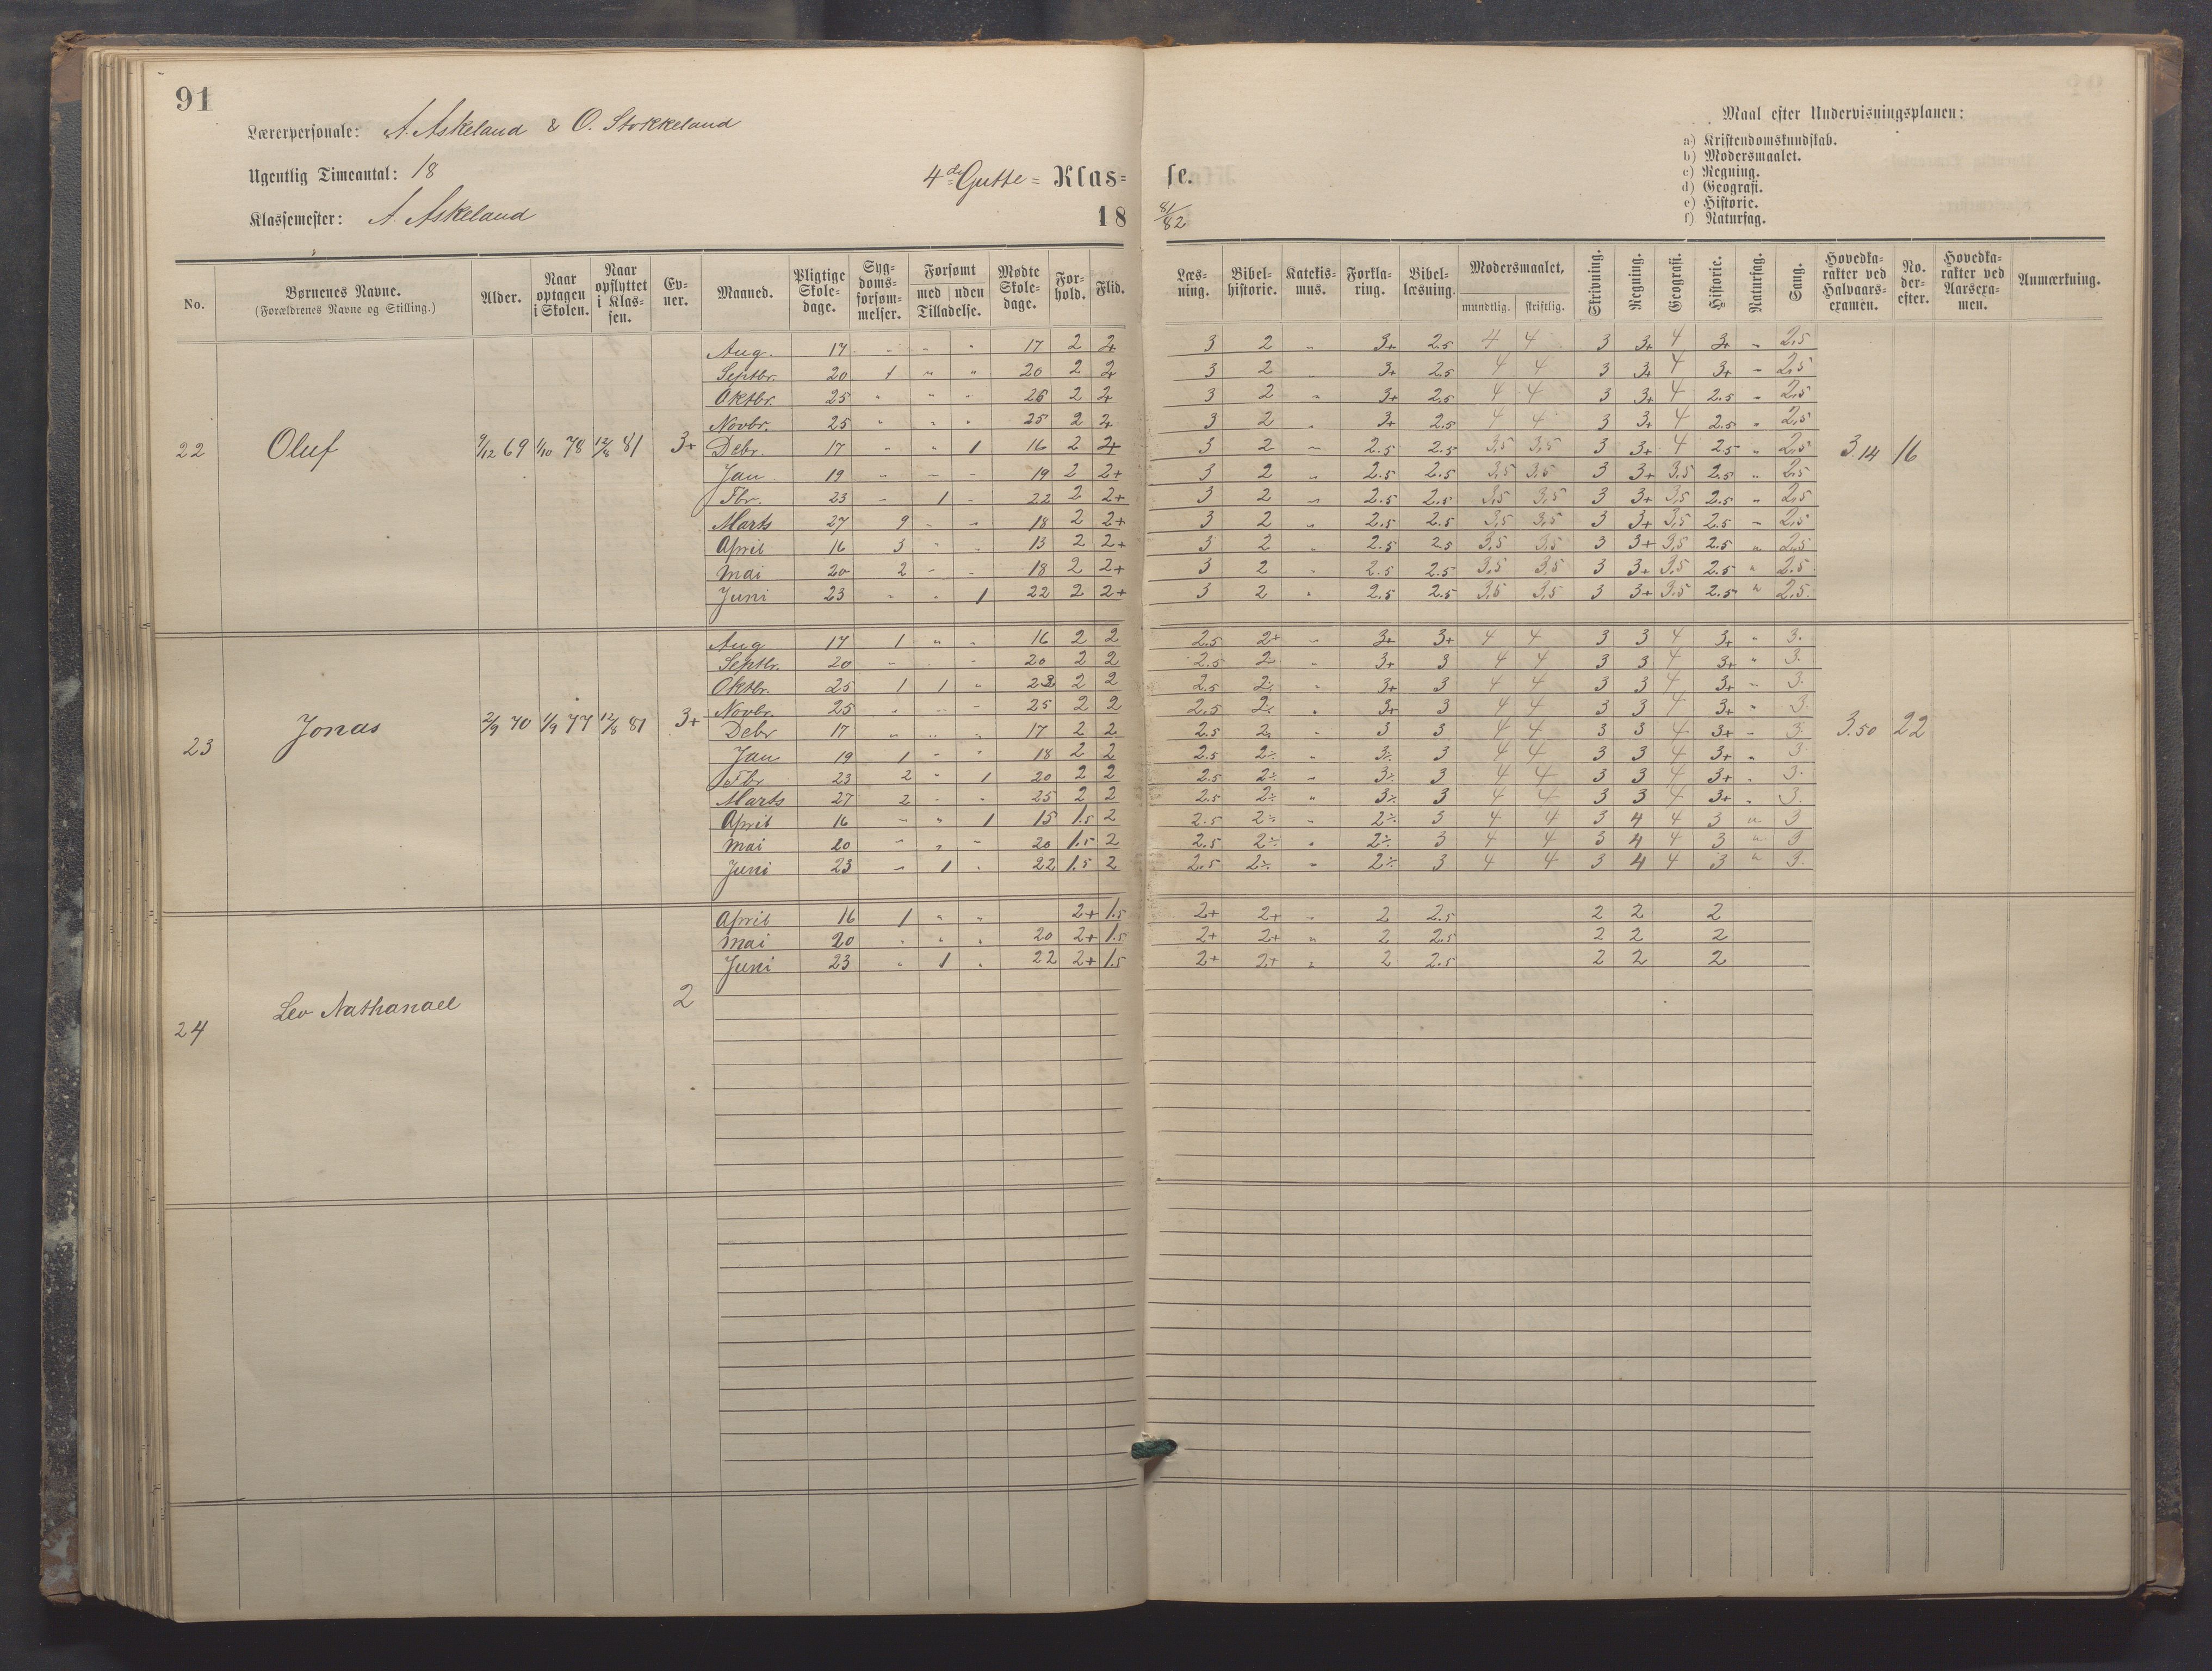 91
Lærerpersonale: A. Askeland & O. Stokkeland
Ugentlig Timeantal: 18
Klassemester: A. Askeland
4de Gutte = Klas= se.
18 81/82
Maal efter Undervisningsplanen:
a) Kristendomskundskab.
b) Modersmaalet.
c) Regning.
d) Geografi.
e) Historie.
f) Naturfag.
No. | Børnenes Navne. (Forældrenes Navne og Stilling.) | Alder. | Naar optagen i Skolen. | Naar opflyttet i Klas-sen. | Ev-ner. | Maaned. | Pligtige Skole-dage. | Syg-doms-forsøm-melser. | Forsømt med Tilladelse. | uden Tilladelse. | Mødte Skole-dage. | For-hold. | Flid. | Læs-ning. | Bibel-historie. | Katekis-mus. | Forkla-ring. | Bibel-læsning. | Modersmaalet, mundtlig. | skriftlig. | Skrivning. | Regning. | Geografi. | Historie. | Naturfag. | Sang. | Hovedka-rakter ved Halvaars-examen. | No. der-efter. | Hovedka-rakter ved Aarsexa-men. | Anmærkning.
22 Oluf 9/12 69 1/10 78 12/8 81 3+ 3.14 16
Aug. 17 " " " 17 2 2+ 3 2 " 3+ 2.5 4 4 3 3+ 4 3+ " 2,5
Septbr. 20 1 " " 20 2 2+ 3 2 " 3+ 2.5 4 4 3 3+ 4 3+ " 2,5
Oktbr. 25 " " " 2 2+ 3 2 " 3+ 2.5 4 4 3 3+ 4 2.5 " 2,5
Novbr. 25 " " " 25 2 2+ 3 2 " 3+ 2.5 4 4 3 3+ 4 2.5 " 2,5
Debr. 17 " " 1 16 2 2+ 3 2 " 2.5 2.5 3,5 3,5 3 3+ 4 2.5 " 2,5
Jan 19 " " " 19 2 2+ 3 2 " 2.5 2.5 3,5 3,5 3 3+ 3,5 2.5 " 2,5
Fbr. 23 " 1 " 22 2 2+ 3 2 " 2.5 2.5 3,5 3,5 3 3+ 3,5 2.5 " 2,5
Marts 27 9 " " 18 2 2+ 3 2 " 2.5 2.5 3,5 3,5 3 3+ 3,5 2.5 " 2,5
April 16 3 " " 13 2 2+ 3 2 " 2.5 2.5 3,5 3,5 3 3+ 3,5 2.5 " 2,5
Mai 20 2 " " 18 2 2+ 3 2 " 2.5 2.5 3,5 3,5 3 3+ 3,5 2.5 " 2.5
Juni 23 " " 1 22 2 2+ 3 2 " 2.5 2.5 3,5 3,5 3 3+ 3,5 2.5 " 2,5
23 Jonas 2/9 70 1/9 77 12/8 81 3+ 3.50 22
Aug 17 1 " " 16 2 2 2.5 2+ " 3+ 3+ 4 4 3 3 4 3+ " 3.
Septbr. 20 " " " 20 2 2 2.5 " 3+ 3 4 4 3 3 4 3+ " 3.
Oktbr. 25 1 1 " 23 2 2 2.5 " 3+ 3 4 4 3 3 4 3+ " 3.
Novbr. 25 " " " 25 2 2 2.5 " 3+ 3 4 4 3 3 4 3+ " 3.
Debr 17 " " " 17 2 2 2.5 " 3 3 4 4 3 3 4 3+ " 3
Jan 19 1 " " 18 2 2 2.5 2÷ " 3÷ 3 4 4 3 3 4 3+ " 3.
Fbr 23 2 " 1 20 2 2 2.5 2÷ " 3÷ 3 4 4 3 3 4 3+ " 3.
Marts 27 2 " " 25 2 2 2.5 2÷ " 3÷ 3 4 4 3 3 4 3+ " 3.
April 16 " " 1 15 1.5 2 2.5 2÷ " 2÷ 3 4 4 3 4 4 3 " 3
Mai 20 " " " 20 1.5 2 2.5 2÷ " 2÷ 3 4 4 3 4 4 3 " 3
Juni 23 " 1 " 22 1.5 2 2.5 2÷ " 2÷ 3 4 4 3 4 4 3 " 3.
24 Lev Nathanael 2
April 16 1 " " 2+ 1.5 2+ 2+ " 2 2.5 2 2 2
Mai 20 " " " 20 2+ 1.5 2+ 2+ " 2 2.5 2 2 2
Juni 23 " 1 " 22 2+ 1.5 2+ 2+ " 2 2.5 2 2 2